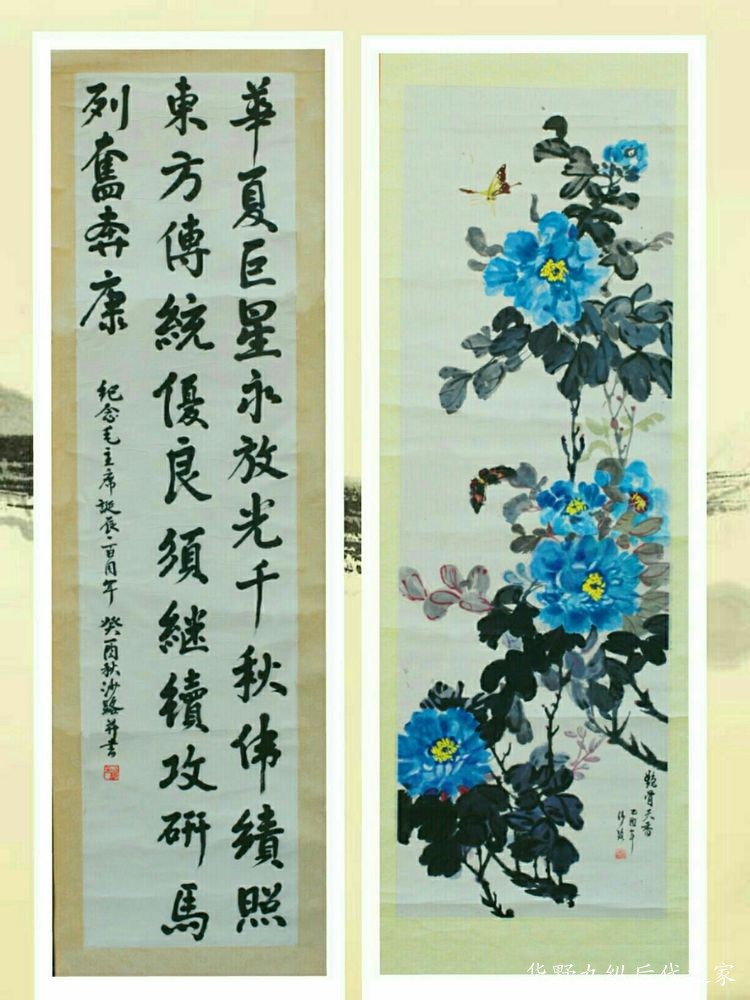 華夏巨星永放光千秋伟績照
東方傳統優良須継續攻研馬
列奮奔康
纪念毛主席诞辰一百周年 癸酉秋沙路并書
艶骨天香
乙酉年
沙路
华野九纵后代之家